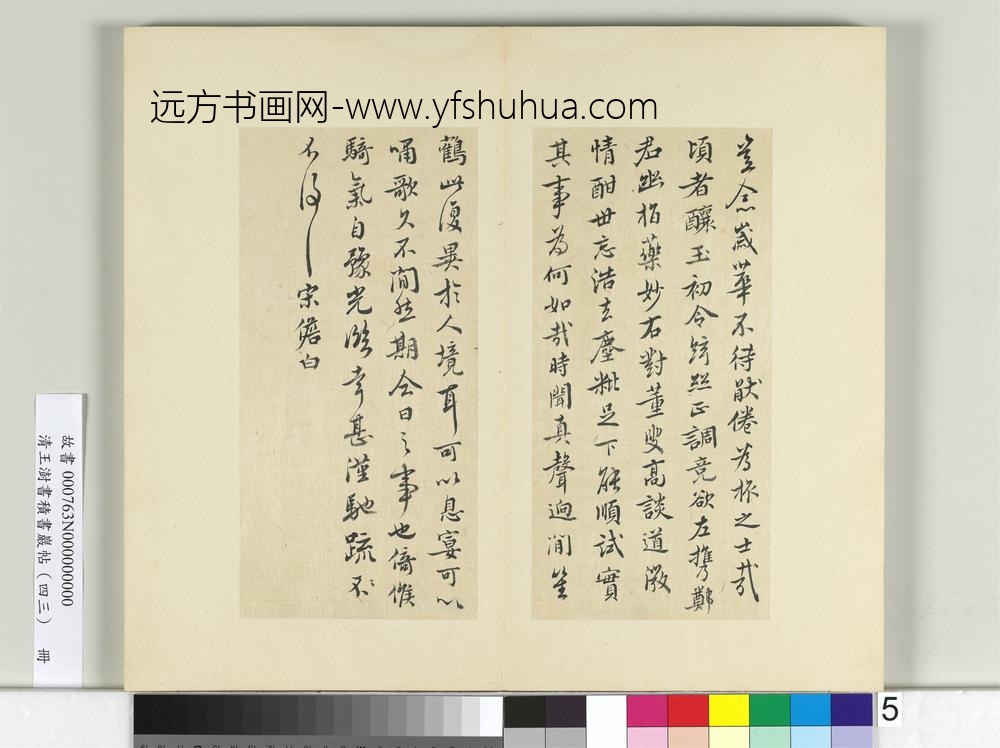 远方书画网-www.yfshuhua.com
念歲華不待猒倦為旅之士哉
頃者釀玉初令絃照正調竟欲左攜鄭
君幽指藥妙右對董叟高談道澂
情酣世忘浩去塵粃足下能順試實
其事為何如哉時聞真聲迥澗笙
鶴此復異於人境耳可以息宴可以
嘯歌久不間然期今日之事也倚候
騎氣自豫光臨幸甚謹馳疏不
不得
宗儋白
故書 000763N000000000
清王澍書積書巖帖(四三) 冊
5